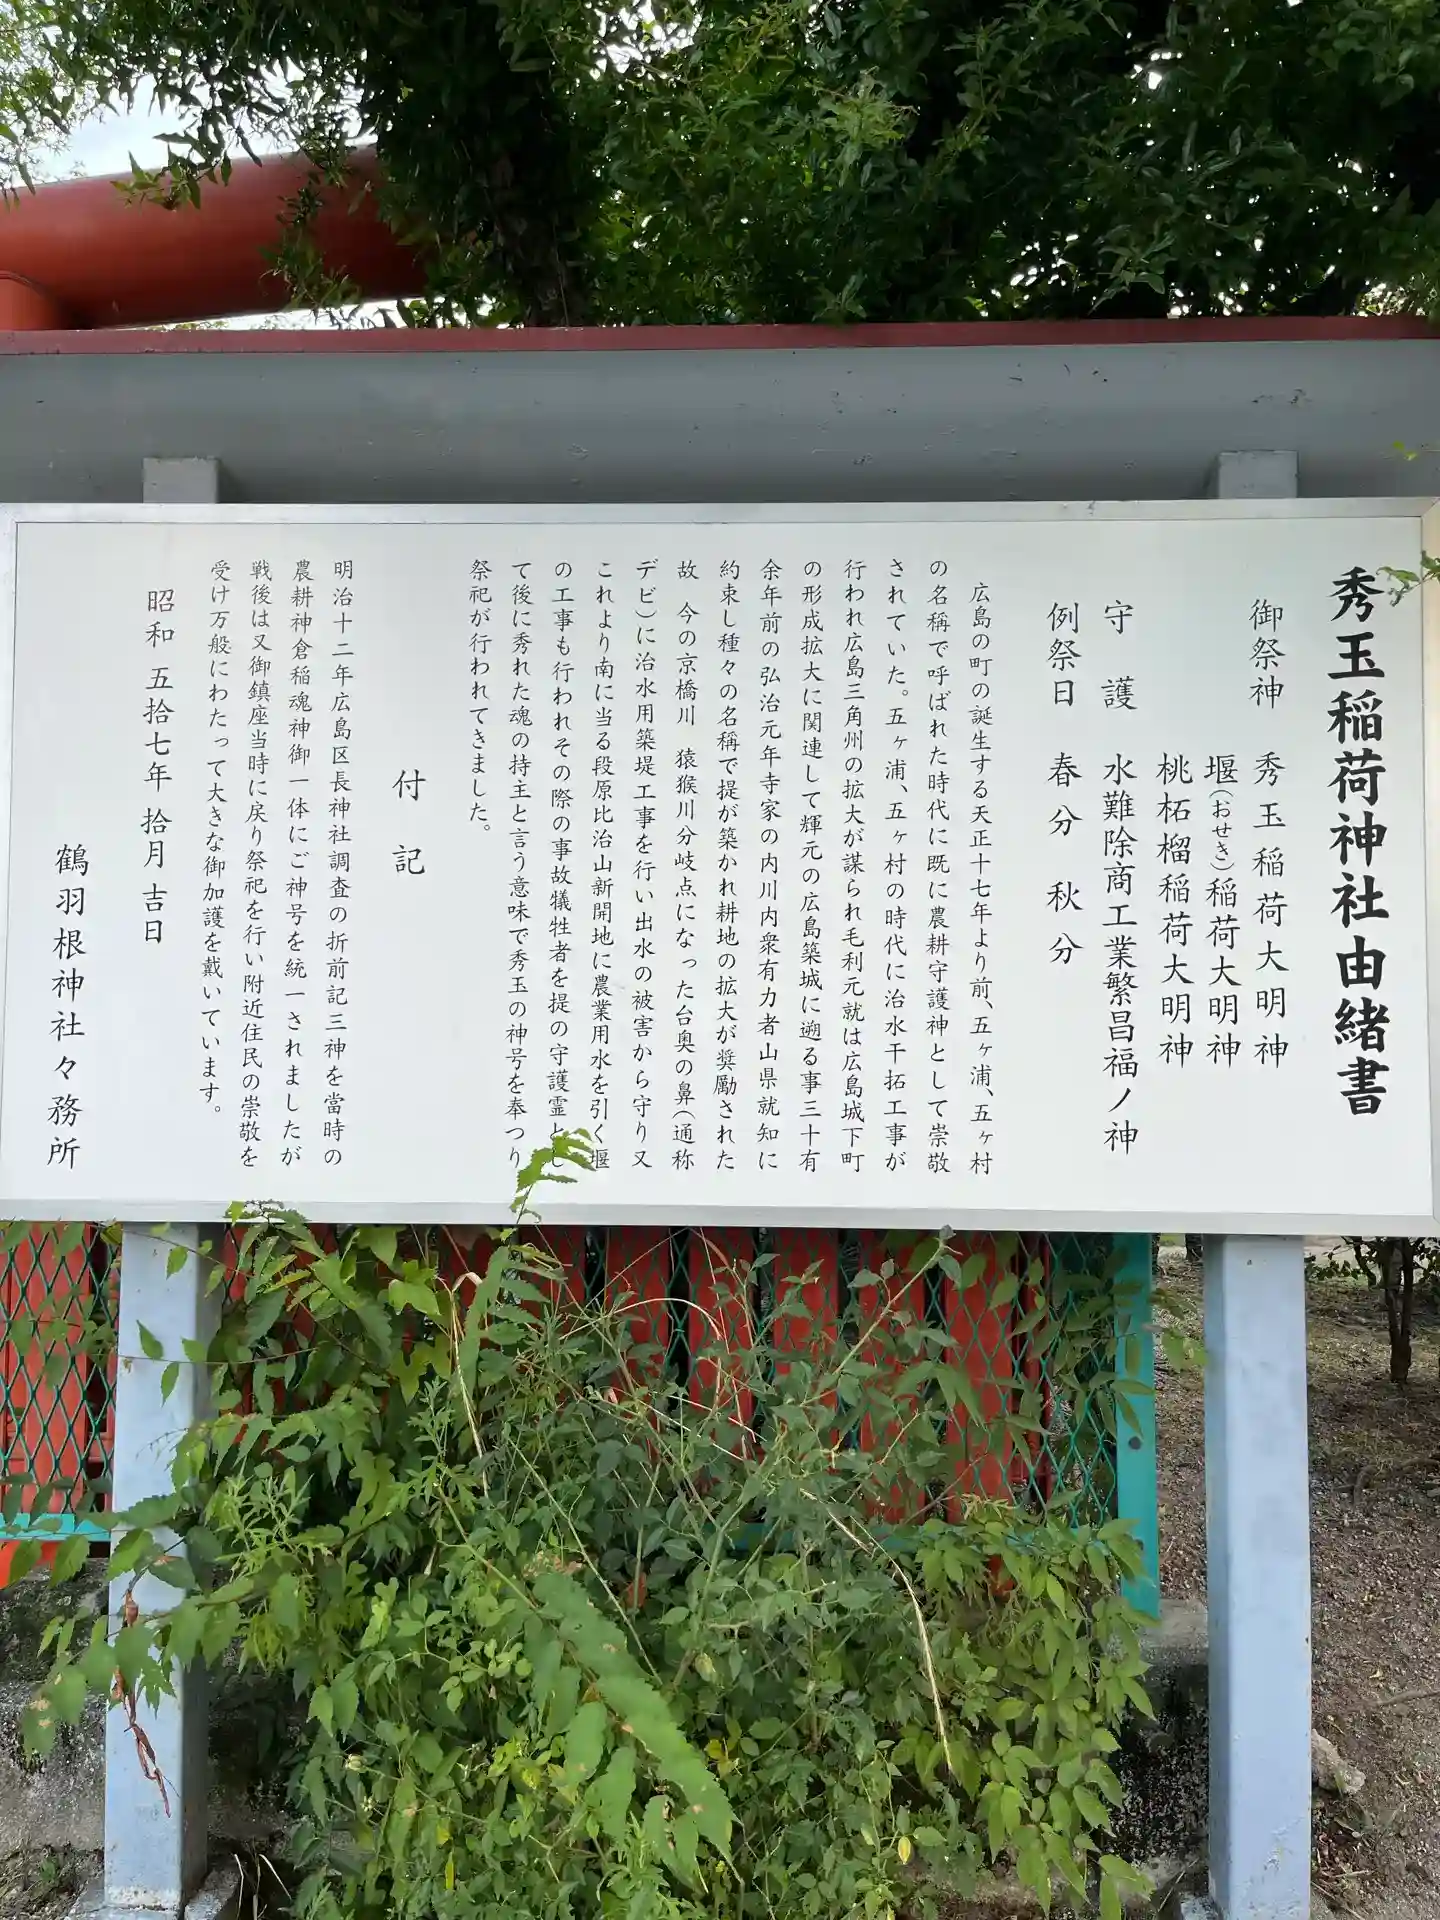 秀玉稲荷神社由緒書
御祭神 秀玉稲荷大明神
堰(おせき)稲荷大明神
桃柘榴稲荷大明神
守護 水難除商工業繁昌福ノ神
例祭日 春分 秋分
広島の町の誕生する天正十七年より前、五ヶ浦、五ヶ村
の名稱で呼ばれた時代に既に農耕守護神として崇敬
されていた。五ヶ浦、五ヶ村の時代に治水干拓工事が
行われ広島三角州の拡大が謀られ毛利元就は広島城下町
の形成拡大に関連して輝元の広島築城に遡る事三十有
余年前の弘治元年寺家の内川内衆有力者山県就知に
約束し種々の名稱で提が築かれ耕地の拡大が奨励された
故 今の京橋川 猿猴川分岐点になった台奥の鼻(通称
デビ)に治水用築堤工事を行い出水の被害から守り又
これより南に当る段原比治山新開地に農業用水を引く堰
の工事も行われその際の事故犠牲者を提の守護霊とし
て後に秀れた魂の持主と言う意味で秀玉の神号を奉つり
祭祀が行われてきました。
付記
明治十二年広島区長神社調査の折前記三神を當時の
農耕神倉稲魂神御一体にご神号を統一されましたが
戦後は又御鎮座当時に戻り祭祀を行い附近住民の崇敬を
受け万般にわたって大きな御加護を戴いています。
昭和 五拾七年 拾月 吉日
鶴羽根神社々務所